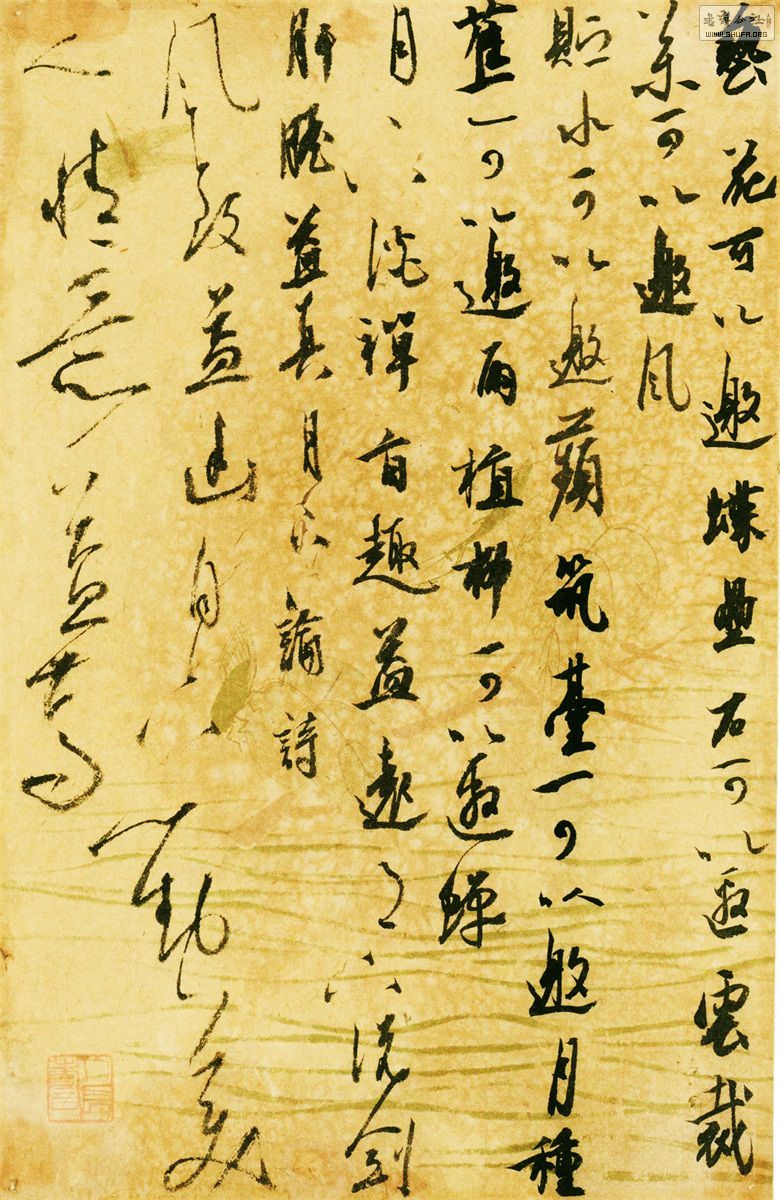 藝花可以邀蝶壘石可以邀雲栽
松可以邀風
貯水可以邀蘋築臺可以邀月種
蕉可以邀雨植柳可以邀蟬
月下談禪旨趣益遠月下說劍
肝膽益真月下論詩
風致益幽月下對美
人情意益篤
WWW.SHUFA.ORG